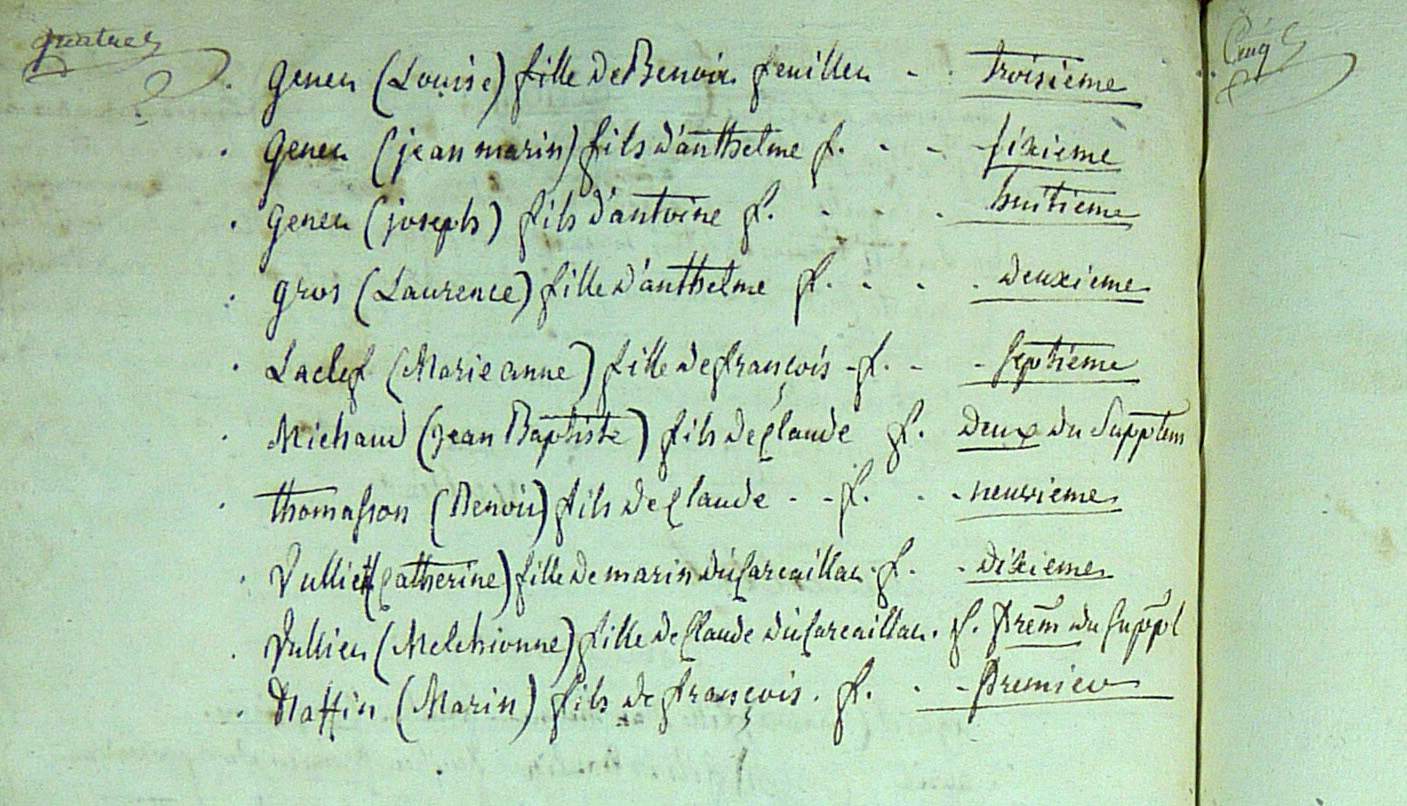 quatre
genet (Louise) fille de Benoit feuillet troisieme
genet (jean marin) fils d'anthelme f. sixieme
genet (joseph) fils d'antoine f. huitieme
gros (Laurence) fille d'anthelme f. deuxieme
Laclef (Marie anne) fille de françois f. septieme
Michaud (jean Baptiste) fils de Claude f. deux du Supplem
thomasson (Benoit) fils de Claude f. neuvieme
Vulliet (Catherine) fille de marin f. dixieme
Vulliet (Melchionne) fille de Claude f. prem du suppl
(Marin) fils de françois f. premier
Cinq